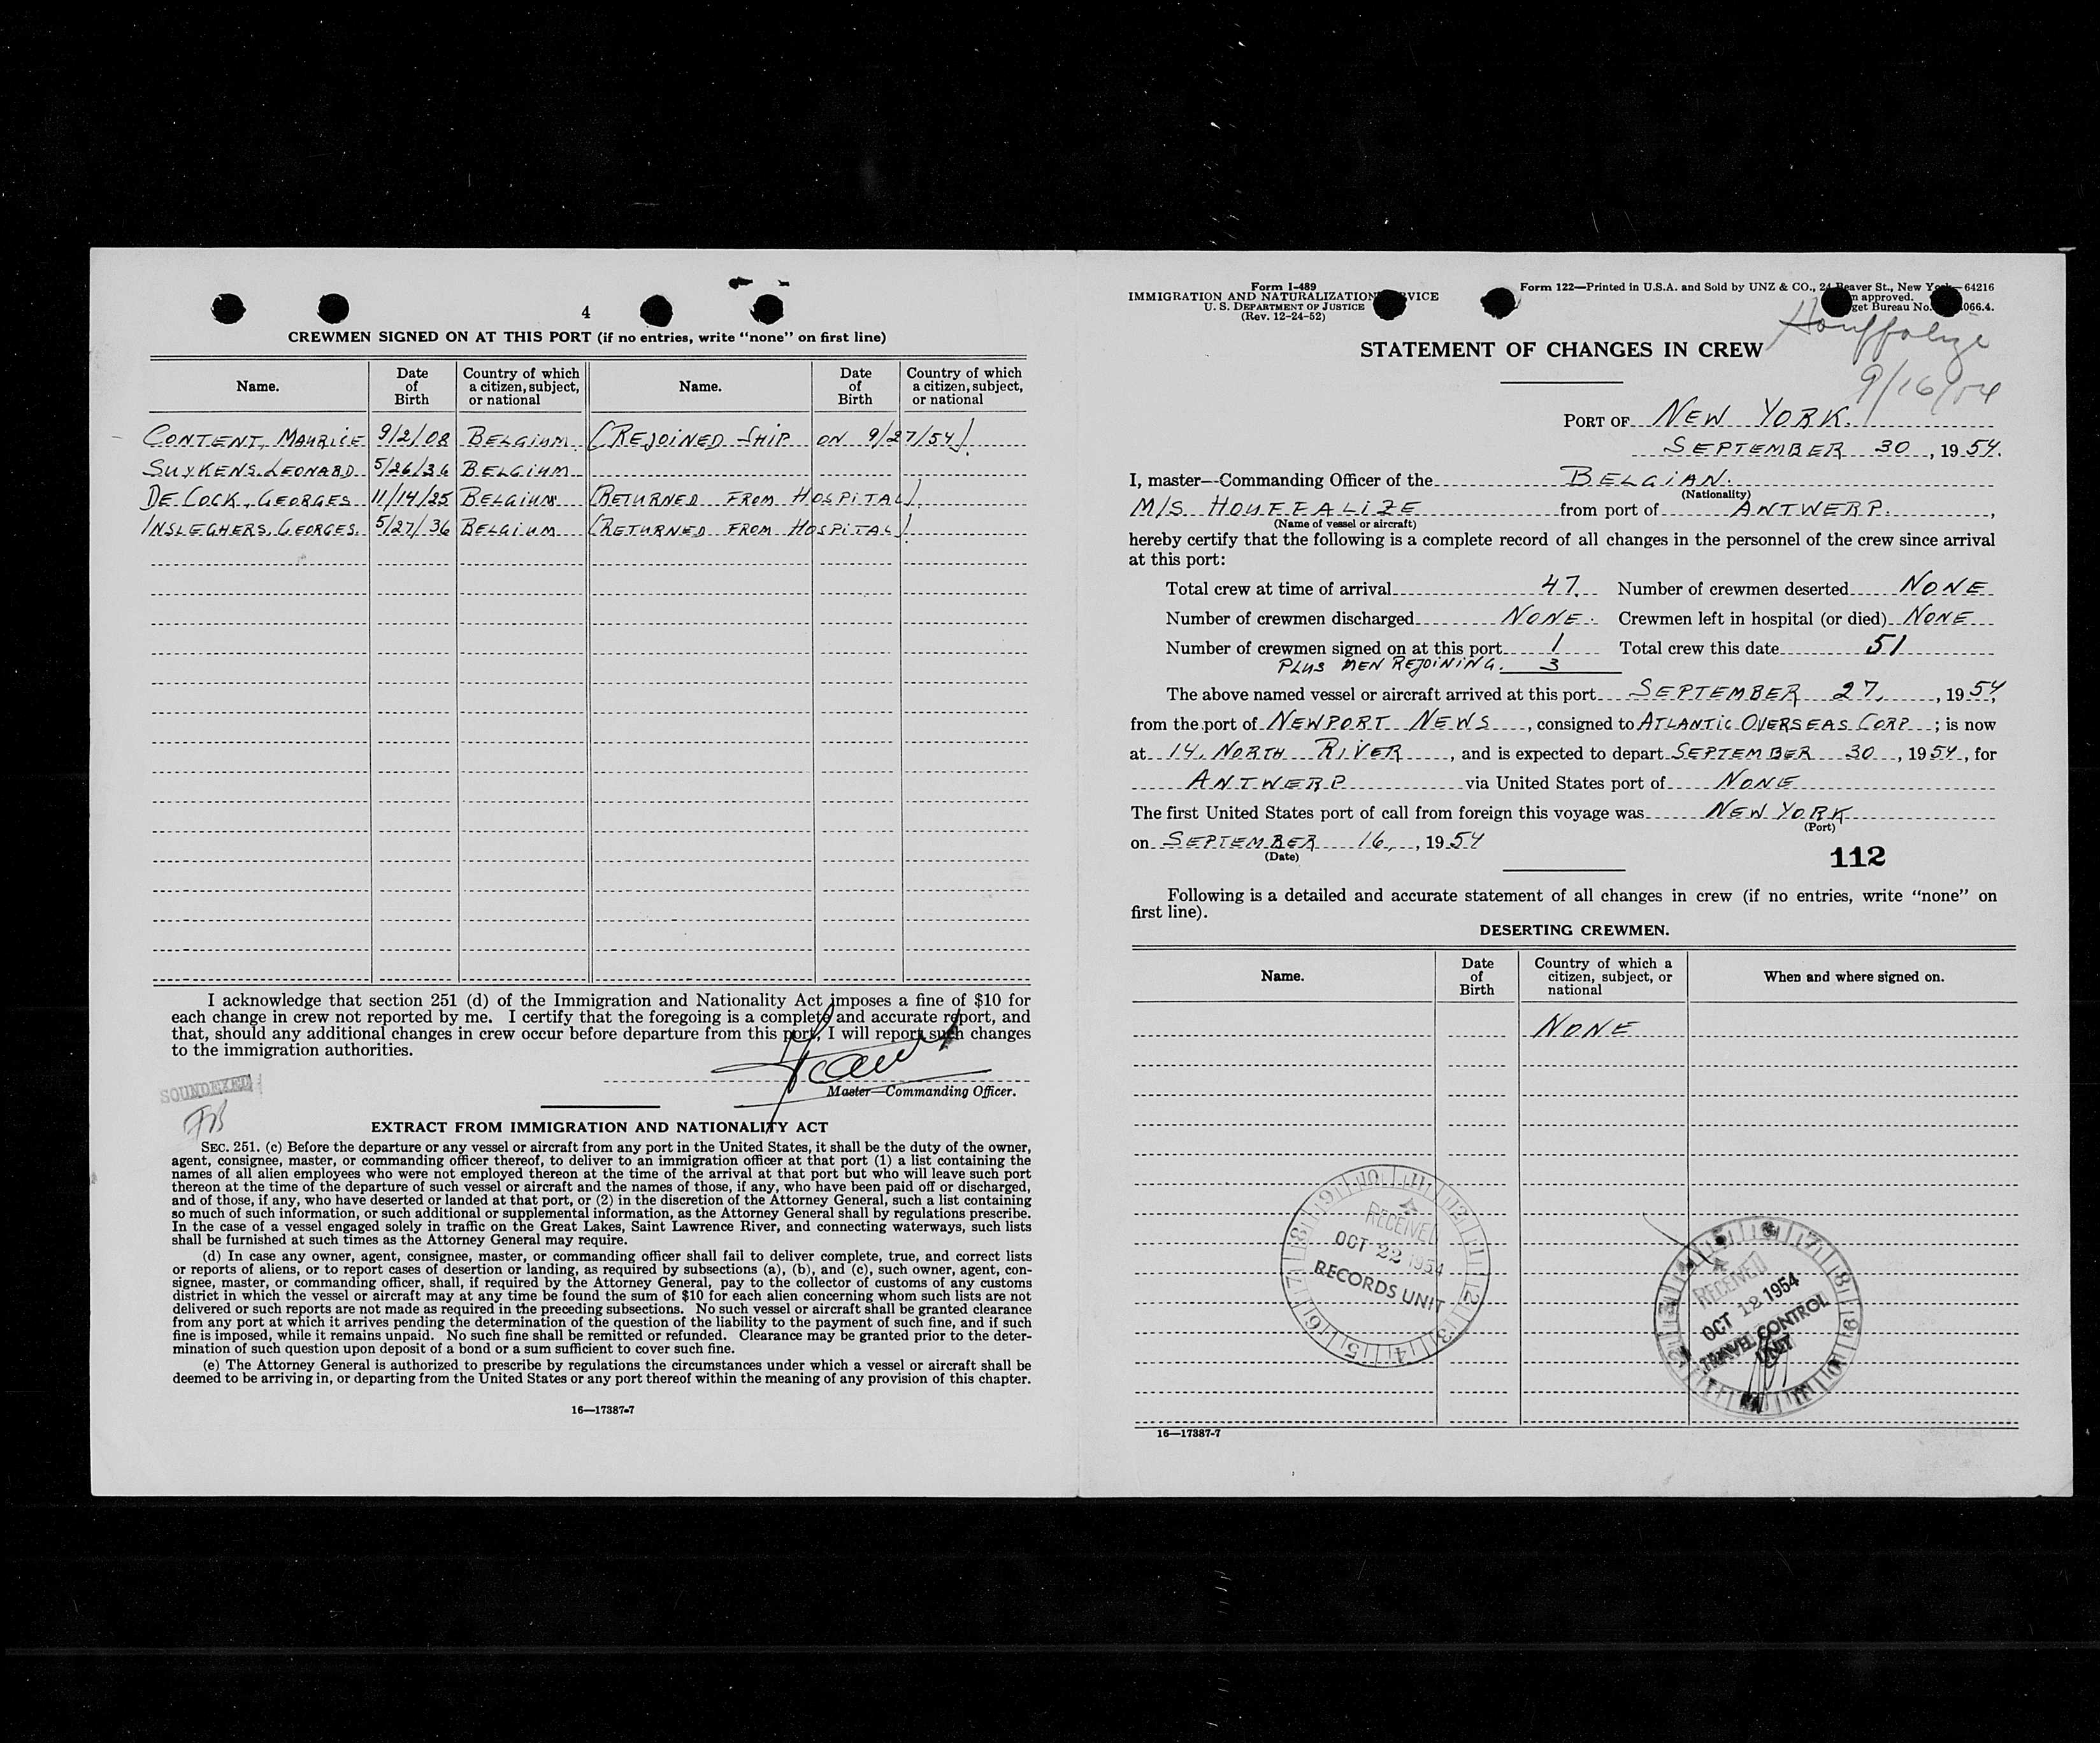 4
CREWMEN SIGNED ON AT THIS PORT (if no entries, write "none" on first line)
Name. Date of Birth Country of which a citizen, subject, or national Name. Date of Birth Country of which a citizen, subject, or national
CONTENT, MAURICE 9/2/08 BELGIUM (REJOINED SHIP ON 9/27/54).
SUYKENS. LEONARD 5/26/36 BELGIUM
DE COCK, GEORGES 11/14/25 BELGIUM (RETURNED FROM HOSPITAL).
INSLEGHERS. GEORGES. 5/27/36 BELGIUM (RETURNED FROM HOSPITAL).
I acknowledge that section 251 (d) of the Immigration and Nationality Act imposes a fine of $10 for
each change in crew not reported by me. I certify that the foregoing is a complete and accurate report, and
that, should any additional changes in crew occur before departure from this port, I will report such changes
to the immigration authorities.
SOUNDEXED
Master—Commanding Officer.
EXTRACT FROM IMMIGRATION AND NATIONALITY ACT
SEC. 251. (c) Before the departure or any vessel or aircraft from any port in the United States, it shall be the duty of the owner,
agent, consignee, master, or commanding officer thereof, to deliver to an immigration officer at that port (1) a list containing the
names of all alien employees who were not employed thereon at the time of the arrival at that port but who will leave such port
thereon at the time of the departure of such vessel or aircraft and the names of those, if any, who have been paid off or discharged,
and of those, if any, who have deserted or landed at that port, or (2) in the discretion of the Attorney General, such a list containing
so much of such information, or such additional or supplemental information, as the Attorney General shall by regulations prescribe.
In the case of a vessel engaged solely in traffic on the Great Lakes, Saint Lawrence River, and connecting waterways, such lists
shall be furnished at such times as the Attorney General may require.
(d) In case any owner, agent, consignee, master, or commanding officer shall fail to deliver complete, true, and correct lists
or reports of aliens, or to report cases of desertion or landing, as required by subsections (a), (b), and (c), such owner, agent, con-
signee, master, or commanding officer, shall, if required by the Attorney General, pay to the collector of customs of any customs
district in which the vessel or aircraft may at any time be found the sum of $10 for each alien concerning whom such lists are not
delivered or such reports are not made as required in the preceding subsections. No such vessel or aircraft shall be granted clearance
from any port at which it arrives pending the determination of the question of the liability to the payment of such fine, and if such
fine is imposed, while it remains unpaid. No such fine shall be remitted or refunded. Clearance may be granted prior to the deter-
mination of such question upon deposit of a bond or a sum sufficient to cover such fine.
(e) The Attorney General is authorized to prescribe by regulations the circumstances under which a vessel or aircraft shall be
deemed to be arriving in, or departing from the United States or any port thereof within the meaning of any provision of this chapter.
16—17387-7
Form I-489
IMMIGRATION AND NATURALIZATION VICE
U. S. DEPARTMENT OF JUSTICE
(Rev. 12-24-52)
Form 122—Printed in U.S.A. and Sold by UNZ & CO., 24 Beaver St., New York—64216
approved.
get Bureau No. 066.4.
Houffalize
9/16/54
STATEMENT OF CHANGES IN CREW
PORT OF NEW YORK.
SEPTEMBER 30, 1954.
I, master—Commanding Officer of the BELGIAN.
(Nationality)
M/S HOUFFALIZE from port of ANTWERP.,
(Name of vessel or aircraft)
hereby certify that the following is a complete record of all changes in the personnel of the crew since arrival
at this port:
Total crew at time of arrival 47. Number of crewmen deserted NONE
Number of crewmen discharged NONE. Crewmen left in hospital (or died) NONE
Number of crewmen signed on at this port 1 Total crew this date 51
PLUS MEN REJOINING. 3
The above named vessel or aircraft arrived at this port SEPTEMBER 27, 1954,
from the port of NEWPORT NEWS, consigned to ATLANTIC OVERSEAS CORP; is now
at 14. NORTH RIVER, and is expected to depart SEPTEMBER 30, 1954, for
ANTWERP via United States port of NONE
The first United States port of call from foreign this voyage was NEW YORK
(Port)
on SEPTEMBER 16, 1954
(Date)
112
Following is a detailed and accurate statement of all changes in crew (if no entries, write "none" on
first line).
DESERTING CREWMEN.
Name. Date of Birth Country of which a citizen, subject, or national When and where signed on.
NONE
RECEIVED
OCT 22 1954
RECORDS UNIT
RECEIVED
OCT 12 1954
TRAVEL CONTROL
UNIT
16—17387-7